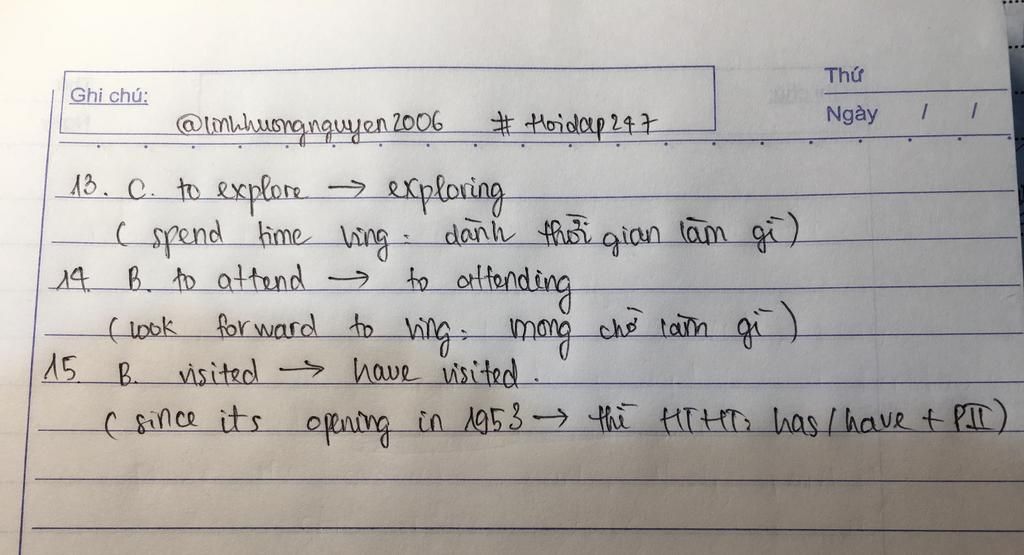 Thứ
Ghi chú:
Ngày / /
@linhhuongnguyen2006 # Hoidap247
13. C. to explore → exploring
( spend time Ving : dành thời gian làm gì )
14. B. to attend → to attending
( look forward to Ving : mong chờ làm gì )
15. B. visited → have visited.
( since its opening in 1953 → thì HTHT: has / have + PII )